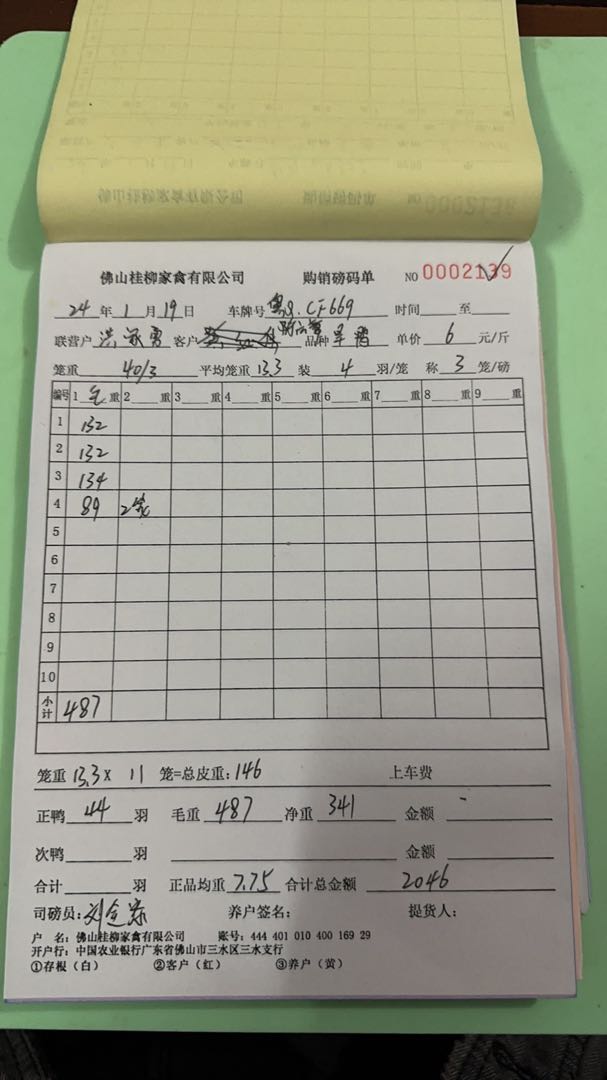 佛山桂柳家禽有限公司 购销磅码单 NO 0002139
24年1月19日 车牌号 CF669 时间 至
联营户 洪 勇 客户 品种 单价 6 元/斤
笼重 40/3 平均笼重 13.3 装 4 羽/笼 称 3 笼/磅
编号 1 毛 重 2 重 3 重 4 重 5 重 6 重 7 重 8 重 9 重
1 132
2 132
3 134
4 89 2笼
5
6
7
8
9
10
小计 487
笼重 13.3 × 11 笼=总皮重: 146 上车费
正鸭 44 羽 毛重 487 净重 341 金额 -
次鸭 羽 金额
合计 羽 正品均重 7.75 合计总金额 2046
司磅员: 刘 养户签名: 提货人:
户 名: 佛山桂柳家禽有限公司 账号: 444 401 010 400 169 29
开户行: 中国农业银行广东省佛山市三水区三水支行
①存根（白） ②客户（红） ③养户（黄）